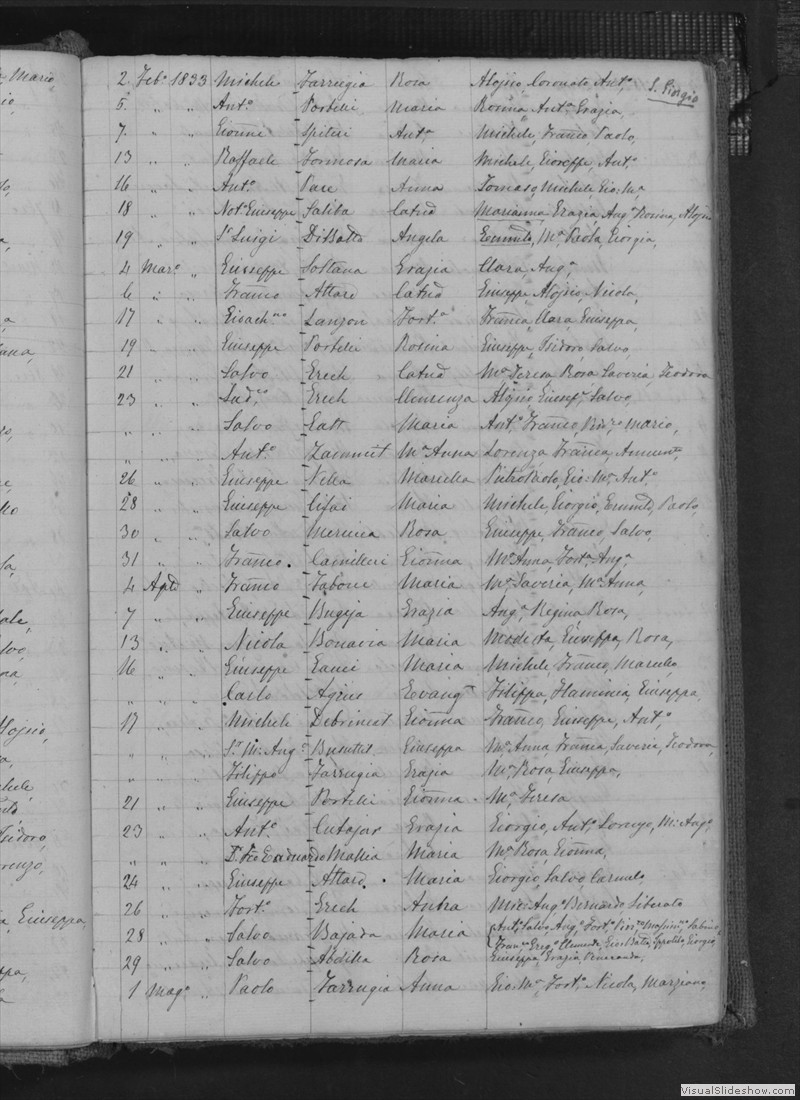 S. Giorgio
2 Feb.o 1833 Michele Farrugia Rosa Alojsio, Coronato, Ant.o
5 " " Ant.o Portelli Maria Rosina, Ant.a Grazia,
7 " " Gionni Spiteri Ant.a Michele, Franco, Paolo,
13 " " Raffaele Formosa Maria Michele, Gioseppe, Ant.o
16 " " Ant.o Pace Anna Tomaso, Michele, Gio: M.a
18 " " Not.o Giuseppe Saliba Catnã Marianna, Grazia, Ang.a Rosina, Alojsio
19 " " S.r Luigi Angela M.a Paola, Giorgia,
4 Mar.o " Giuseppe Soltana Grazia Clara, Ang.a,
6 " " Franco Attard Catnã Giuseppe, Alojsio, Nicola,
17 " " Gioach.no Zanzon Fort.a Franca, Clara, Giuseppa,
19 " " Giuseppe Portelli Rosina Giuseppe, Isidoro, Salvo,
21 " " Salvo Grech Catnã M.a Teresa Rosa Saveria, Teodora
23 " " Lud.co Grech Vincenza Alojsio, Salvo,
" " " Salvo Catt Maria Ant.o Franco, Mario,
" " " Ant.o Zammit M.a Anna Lorenza Franca,
26 " " Giuseppe Vella Mariella Pietro Paolo, Gio: M.a, Ant.o
28 " " Giuseppe Cefai Maria Michele, Giorgio, Paolo,
30 " " Salvo Mercieca Rosa Giuseppe, Franco, Salvo,
31 " " Franco Camilleri Gionna M.a Anna, Fort.a Ang.a
4 Aple " Franco Tabone Maria M.a Saveria, M.a Anna,
7 " " Giuseppe Bugeja Grazia Ang.a Regina Rosa,
13 " " Nicola Bonavia Maria Modesta, Giuseppa, Rosa,
16 " " Giuseppe Gauci Maria Michele, Franco, Marcello
" " Carlo Agius Evang.ta Filippa, Flaminia, Giuseppa,
17 " " Michele Debrincat Gionna Franco, Giuseppe, Ant.o
" " " S.r M: Ang.o Busuttil Giuseppa M.a Anna Franca, Saveria, Teodora,
" " " Filippo Farrugia Grazia M.a Rosa, Giuseppa,
21 " " Giuseppe Portelli Gionna M.a Teresa
23 " " Ant.o Cutajar Grazia Giorgio, Ant.o Lorenzo, M: Ang.o
" " " Mallia Maria M.a Rosa, Gionna,
24 " " Giuseppe Attard Maria Giorgio, Salvo, Carmelo
26 " " Fort.o Grech Mic: Ang.o Bernardo Liberato
28 " " Salvo Bajada Maria Ant.o Salvo, Ang.o Fort.o Sabino,
Clemente, Gio: Batta, Ippolito, Giorgio
29 " " Salvo Abdilla Rosa Giuseppa, Grazia Veneranda,
1 Mag.o " Paolo Farrugia Anna Gio: M.a, Fort.o, Nicola, Marziano,
Mario,
Giuseppa,
VisualSlideshow.com